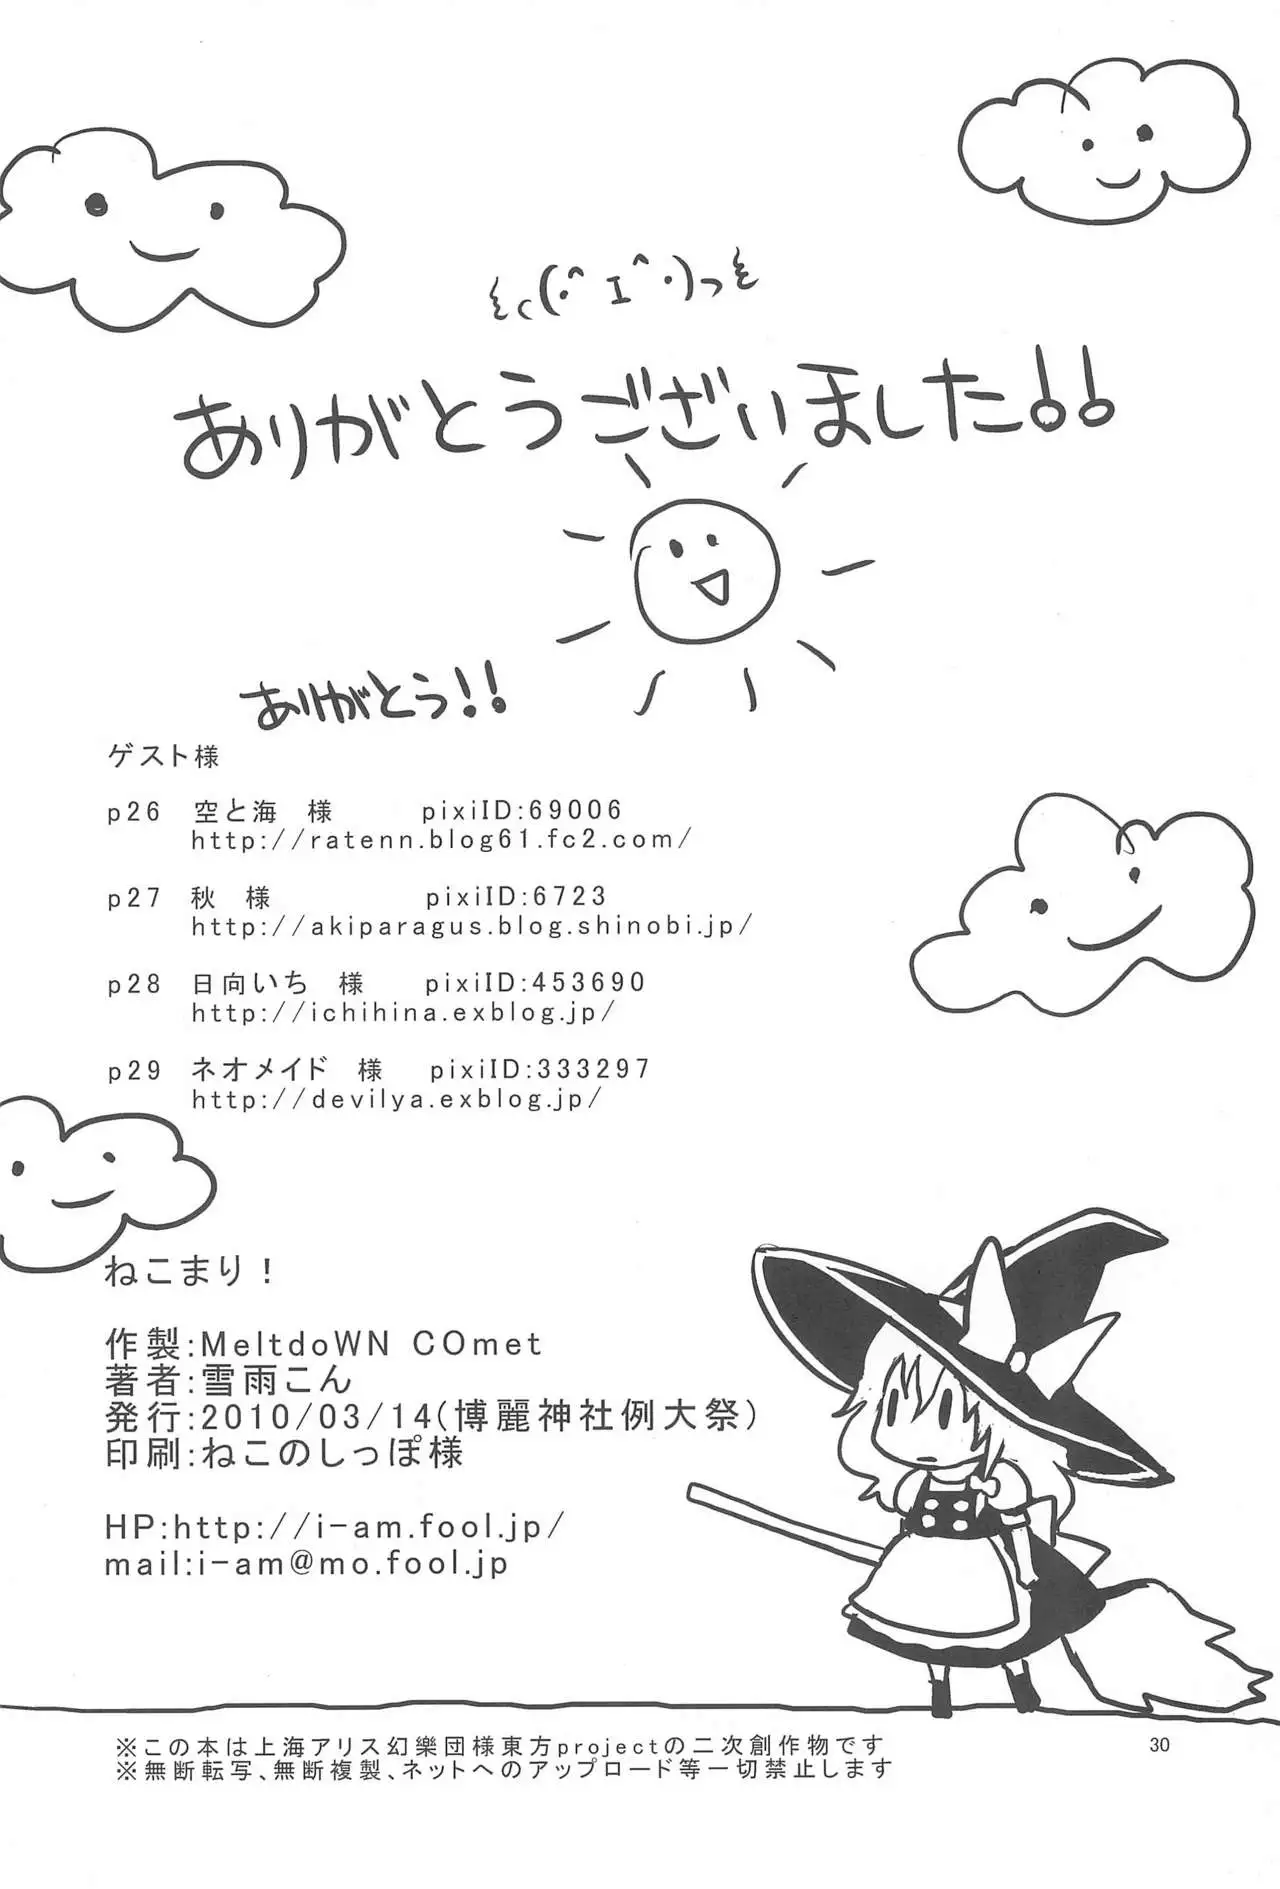 ς(・^ェ^・)っ
ありがとうございました!!
ありがとう!!
ゲスト様
p26 空と海 様 pixiID:69006
http://ratenn.blog61.fc2.com/
p27 秋 様 pixiID:6723
http://akiparagus.blog.shinobi.jp/
p28 日向いち 様 pixiID:453690
http://ichihina.exblog.jp/
p29 ネオメイド 様 pixiID:333297
http://devilya.exblog.jp/
ねこまり!
作製:MeltdoWN COmet
著者:雪雨こん
発行:2010/03/14(博麗神社例大祭)
印刷:ねこのしっぽ様
HP:http://i-am.fool.jp/
mail:i-am@mo.fool.jp
※この本は上海アリス幻樂団様東方projectの二次創作物です
30
※無断転写、無断複製、ネットへのアップロード等一切禁止します